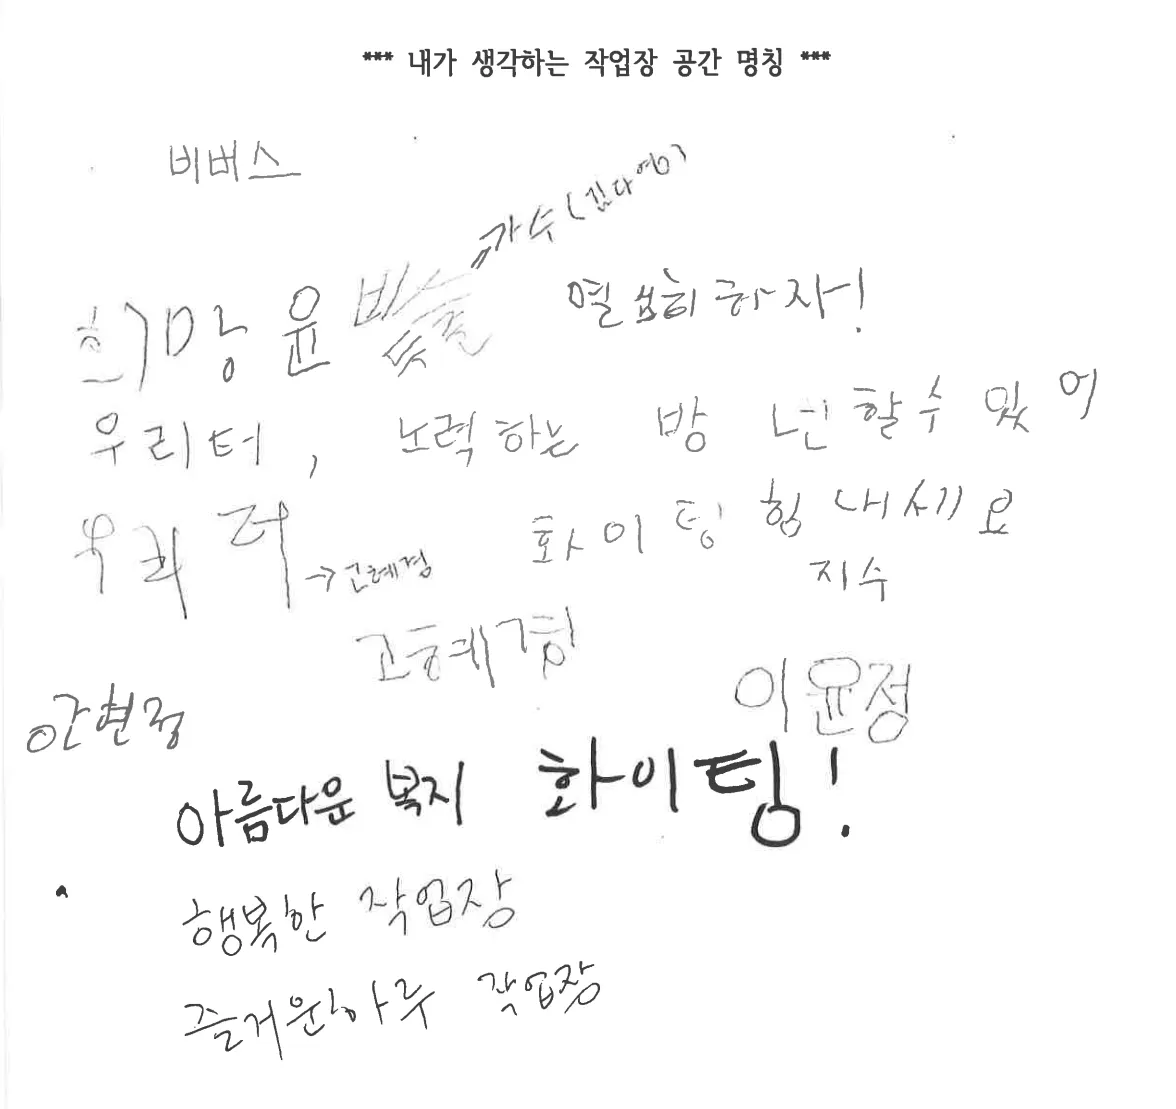 *** 내가 생각하는 작업장 공간 명칭 ***
비버스
가수(김다영)
희망 윤
열심히 하자!
우리터, 노력하는 방 넌 할수 있어
우리 터 → 고혜경
화이팅 힘내세요
지수
고혜경
이윤정
안현정
아름다운 복지 화이팅!
행복한 작업장
즐거운하루 작업장